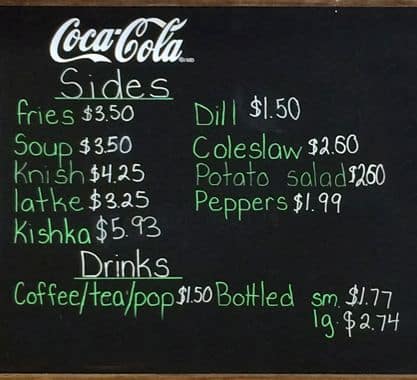 Coca-Cola
Sides
fries $3.50
Dill $1.50
Soup $3.50
Coleslaw $2.60
Knish $4.25
Potato salad $2.60
latke $3.25
Peppers $1.99
Kishka $5.93
Drinks
Coffee/tea/pop $1.50 Bottled sm. $1.77
lg. $2.74